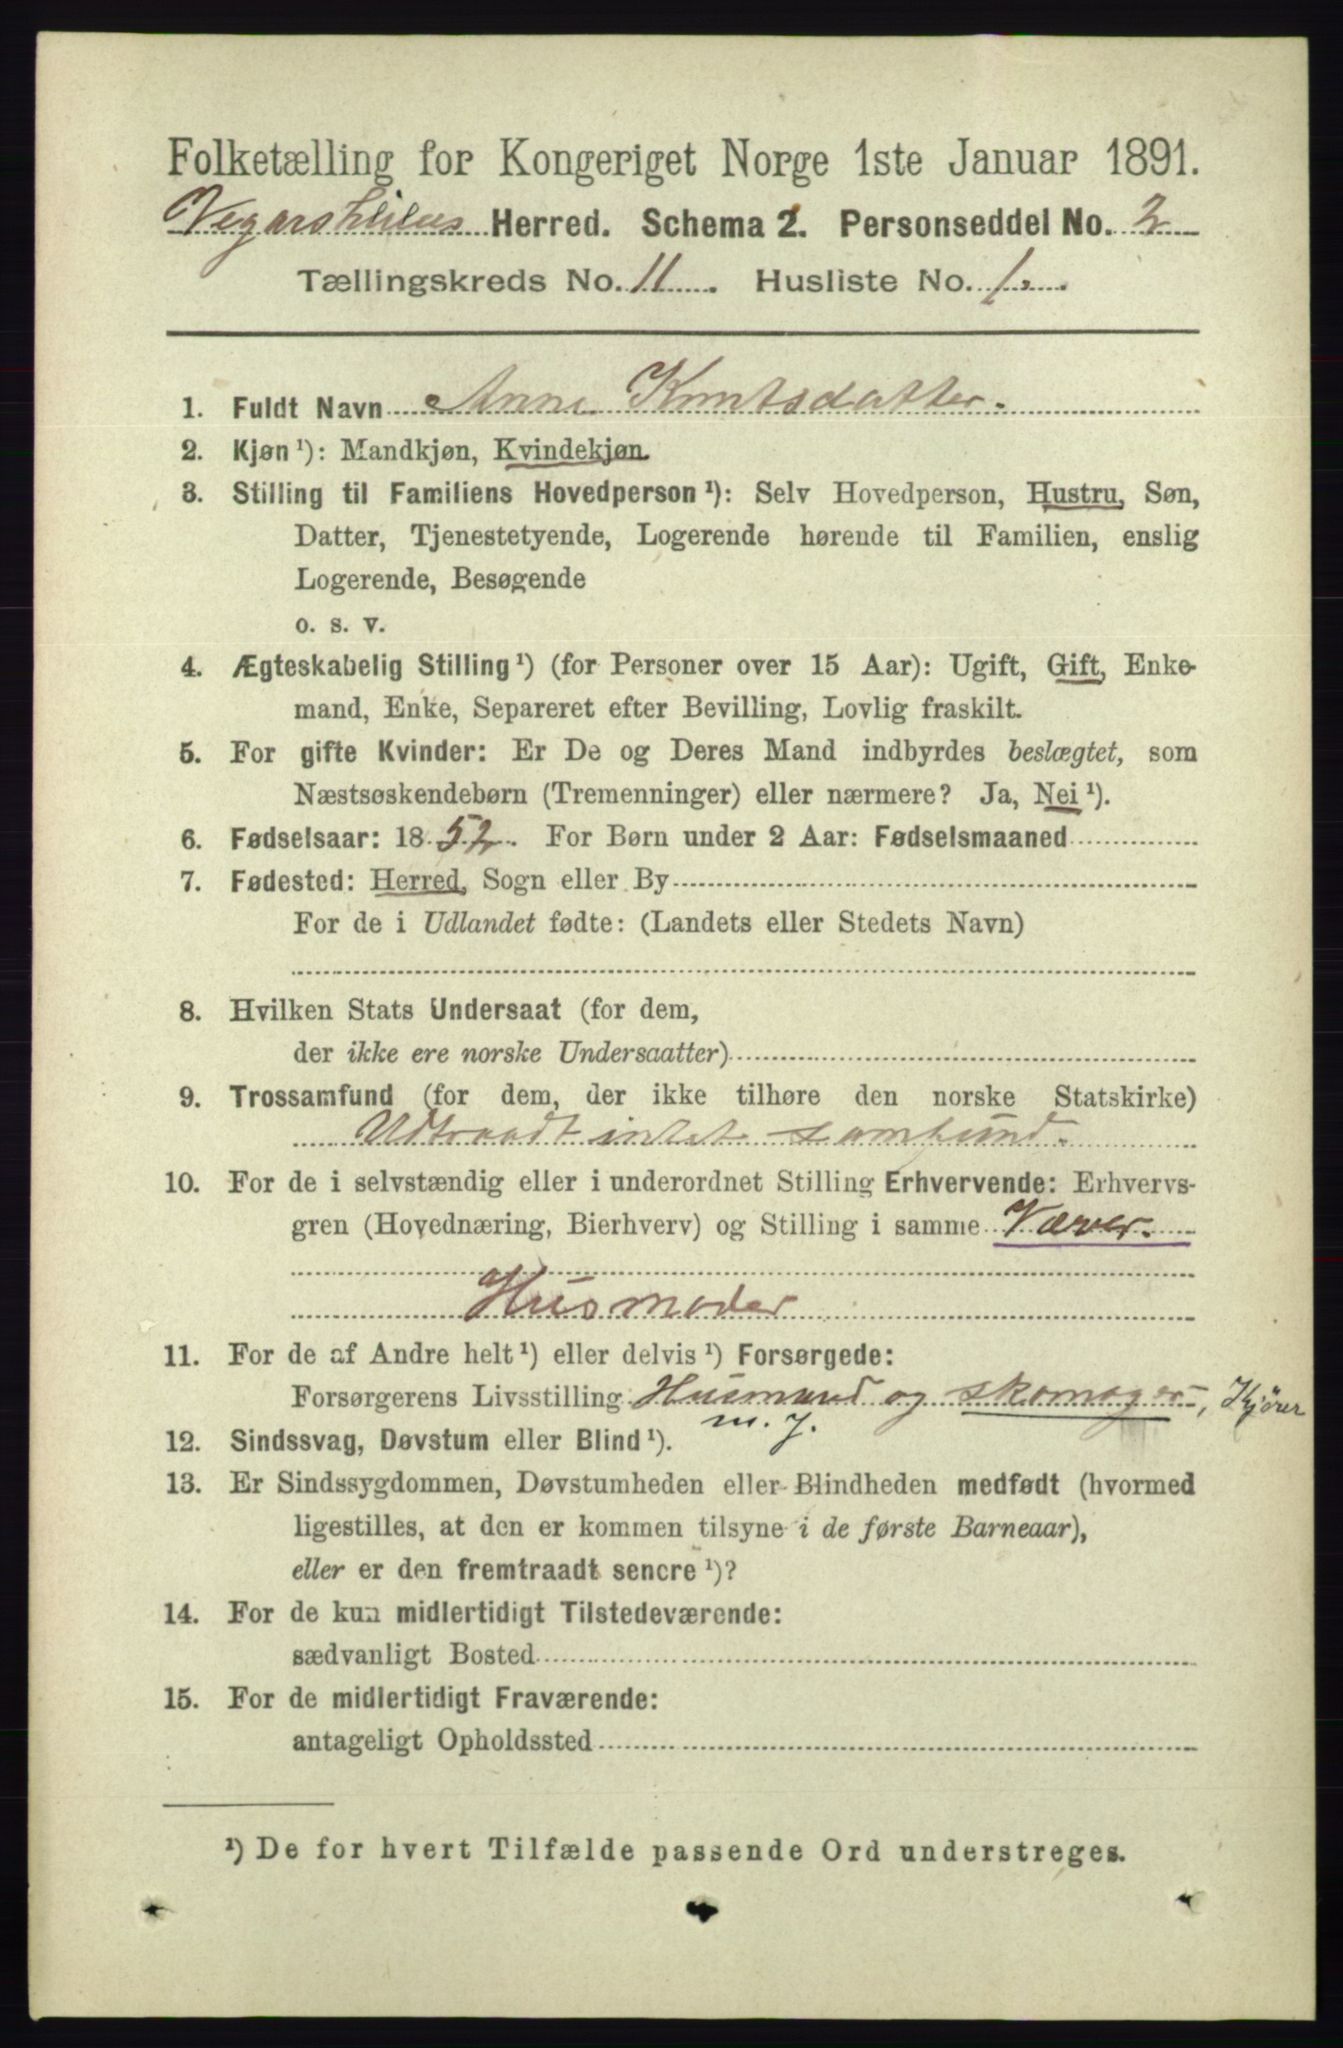 Folketælling for Kongeriget Norge 1ste Januar 1891.
Vegarsheiens Herred. Schema 2. Personseddel No. 2
Tællingskreds No. 11. Husliste No. 1.
1. Fuldt Navn Anne Knutsdatter.
2. Kjøn¹): Mandkjøn, Kvindekjøn.
3. Stilling til Familiens Hovedperson¹): Selv Hovedperson, Hustru, Søn,
Datter, Tjenestetyende, Logerende hørende til Familien, enslig
Logerende, Besøgende
o. s. v.
4. Ægteskabelig Stilling¹) (for Personer over 15 Aar): Ugift, Gift, Enke-
mand, Enke, Separeret efter Bevilling, Lovlig fraskilt.
5. For gifte Kvinder: Er De og Deres Mand indbyrdes beslægtet, som
Næstsøskendebørn (Tremenninger) eller nærmere? Ja, Nei¹).
6. Fødselsaar: 1852. For Børn under 2 Aar: Fødselsmaaned
7. Fødested: Herred, Sogn eller By
For de i Udlandet fødte: (Landets eller Stedets Navn)
8. Hvilken Stats Undersaat (for dem,
der ikke ere norske Undersaatter)
9. Trossamfund (for dem, der ikke tilhøre den norske Statskirke)
Udtraadt intet samfund.
10. For de i selvstændig eller i underordnet Stilling Erhvervende: Erhvervs-
gren (Hovednæring, Bierhverv) og Stilling i samme Væver.
Husmoder
11. For de af Andre helt¹) eller delvis¹) Forsørgede:
Forsørgerens Livsstilling Husmand og skomager, Kjører
m. j.
12. Sindssvag, Døvstum eller Blind¹).
13. Er Sindssygdommen, Døvstumheden eller Blindheden medfødt (hvormed
ligestilles, at den er kommen tilsyne i de første Barneaar),
eller er den fremtraadt senere¹)?
14. For de kun midlertidigt Tilstedeværende:
sædvanligt Bosted
15. For de midlertidigt Fraværende:
antageligt Opholdssted
¹) De for hvert Tilfælde passende Ord understreges.